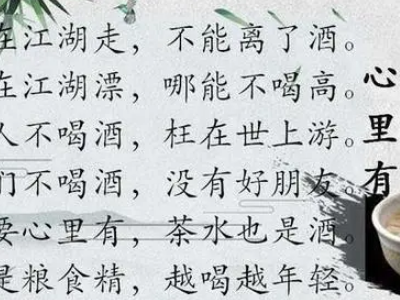 在江湖走，不能离了酒。
在江湖漂，哪能不喝高。
人不喝酒，枉在世上游。
们不喝酒，没有好朋友。
要心里有，茶水也是酒。
是粮食精，越喝越年轻。
心里有